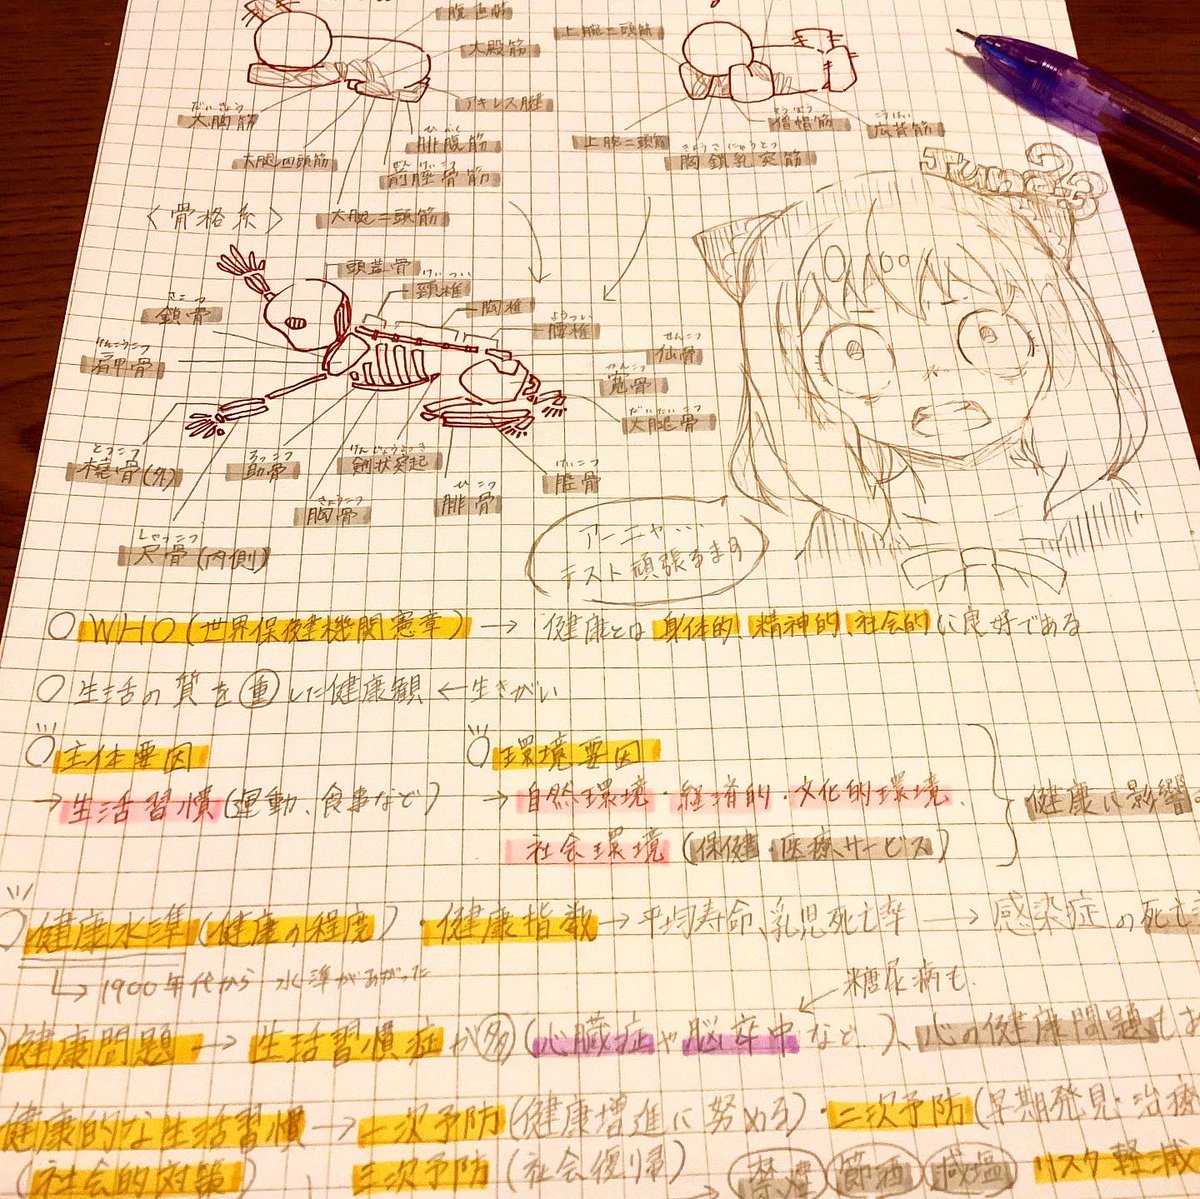 腹直筋
大殿筋
アキレス腱
だいきょう
大胸筋
大腿四頭筋
ひふく
腓腹筋
ぜんけいこつ
前脛骨筋
大腿二頭筋
上腕二頭筋
そうぼう
僧帽筋
こうはい
広背筋
上腕二頭筋
きょうさにゅうとつ
胸鎖乳突筋
〈骨格系〉
頭蓋骨
けいつい
頸椎
胸椎
ようつい
腰椎
せんこつ
仙骨
かんこつ
寛骨
だいたいこつ
大腿骨
さこつ
鎖骨
けんこうこつ
肩甲骨
とうこつ
橈骨(外)
ろっこつ
肋骨
けんじょうとっき
剣状突起
ひこつ
腓骨
けいこつ
脛骨
きょうこつ
胸骨
しゃっこつ
尺骨(内側)
アーニャ...
テスト頑張るます
○WHO(世界保健機関憲章) → 健康とは身体的、精神的、社会的に良好である
○生活の質を重した健康観 ← 生きがい
○主体要因
→生活習慣(運動、食事など)
○環境要因
→自然環境・経済的・文化的環境、
社会環境(保健・医療サービス)
健康に影響
○健康水準(健康の程度)・健康指数→平均寿命、乳児死亡率 → 感染症の死亡
↳1900年代から水準があがった
糖尿病も
健康問題 → 生活習慣症が多(心臓症や脳卒中など)、心の健康問題も
健康的な生活習慣→一次予防(健康増進に努める)・二次予防(早期発見・治療
(社会的対策) 三次予防(社会復帰)
→禁煙 節酒 減塩 リスク軽減